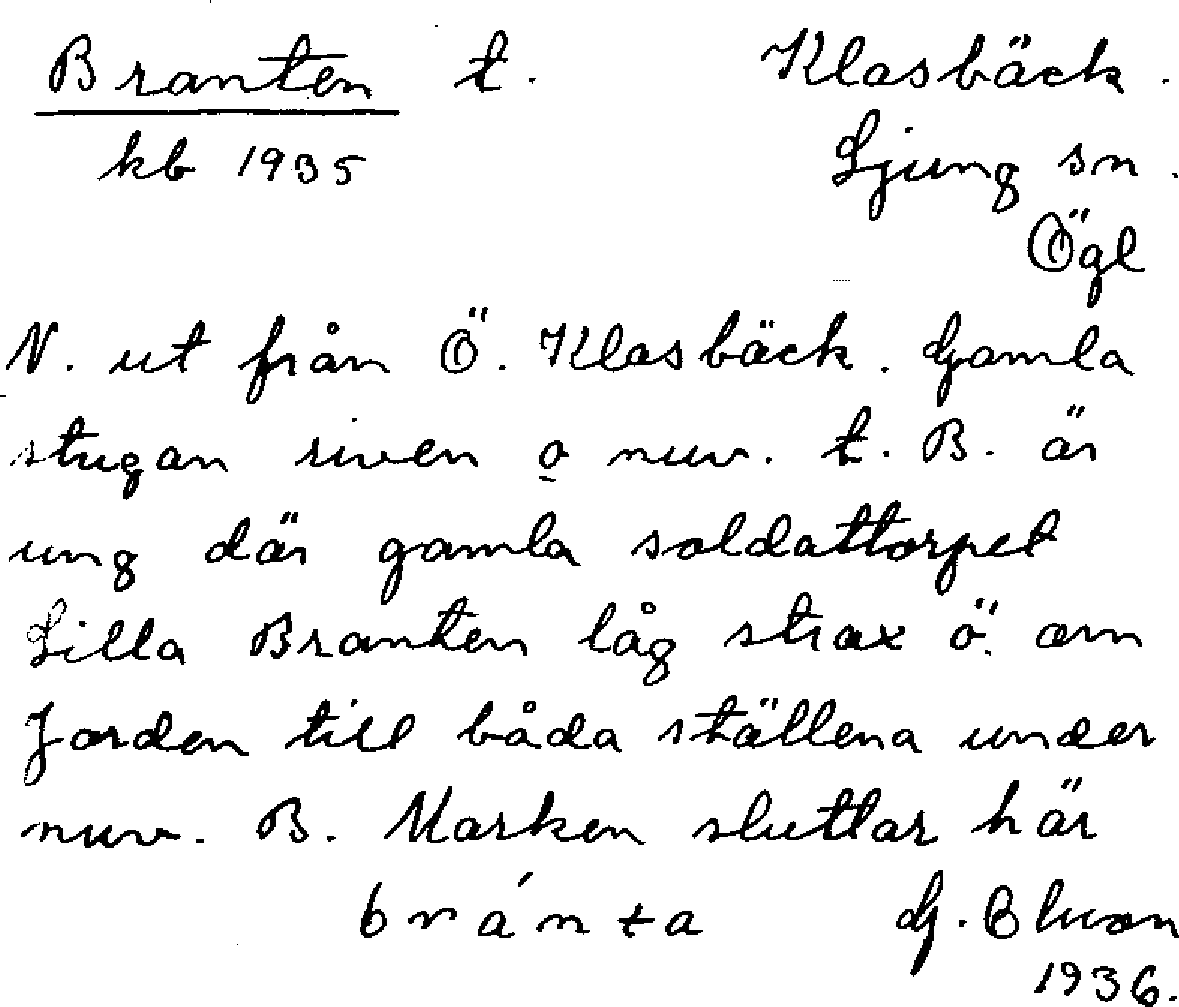 Branten t. Klasbäck.
kb 1935 Ljung sn.
Ögl
N. ut från Ö. Klasbäck. Gamla
stugan riven o nuv. t. B. är
ung där gamla soldattorpet
Lilla Branten låg strax ö. om
Jorden till båda ställena under
nuv. B. Marken sluttar här
bránta G.
1936.